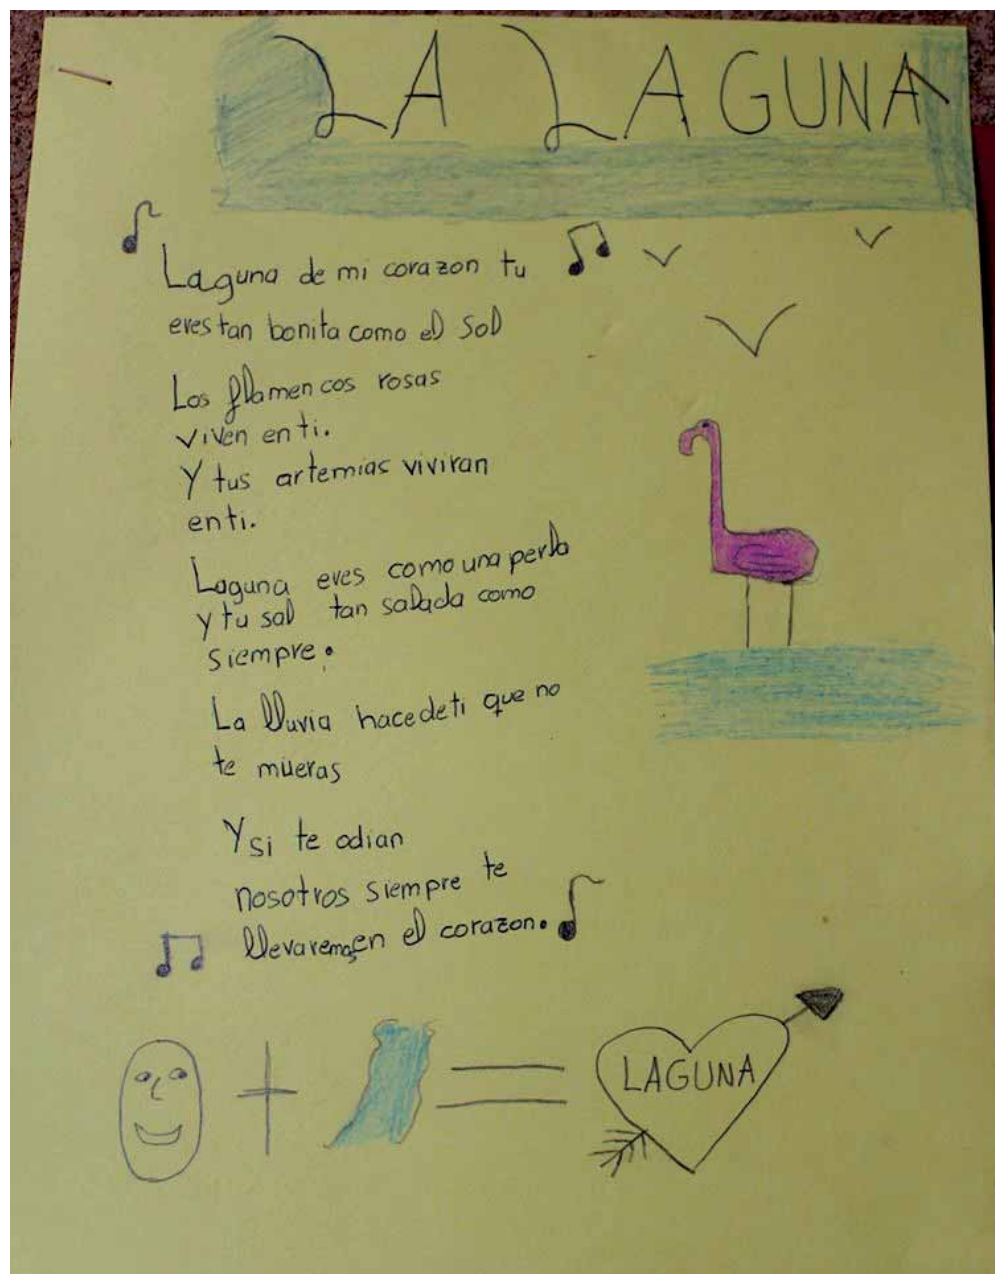 LA LAGUNA
Laguna de mi corazon tu
eres tan bonita como el sol
Los flamencos rosas
viven en ti.
Y tus artemias viviran
en ti.
Laguna eres como una perla
y tu sal tan salada como
siempre.
La lluvia hace de ti que no
te mueras
Y si te odian
nosotros siempre te
llevaremos en el corazon.
+ = LAGUNA